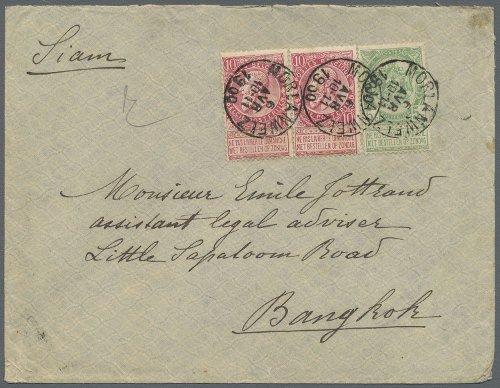 Siam
10 10
MORLANWELZ
6
AVR
10-11
1900
MORLANWELZ
6
AVR
10-11
1900
MORLANWELZ
6
AVR
10-11
1900
NE PAS LIVRER LE DIMANCHE
NIET BESTELLEN OP ZONDAG
NE PAS LIVRER LE DIMANCHE
NIET BESTELLEN OP ZONDAG
NE PAS LIVRER LE DIMANCHE
NIET BESTELLEN OP ZONDAG
Monsieur Emile Jottrand
assistant legal adviser
Little Sapatoom Road
Bangkok